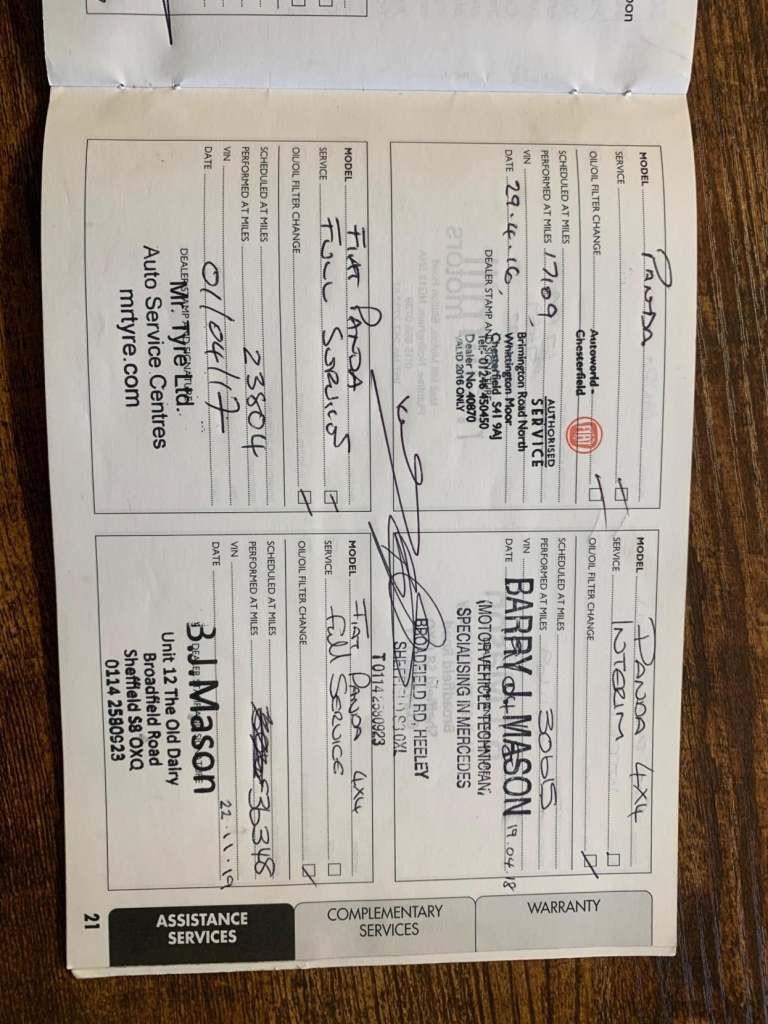 MODEL PANDA
SERVICE
OIL/OIL FILTER CHANGE
Autoworld -
Chesterfield
FIAT
SCHEDULED AT MILES
AUTHORISED
SERVICE
PERFORMED AT MILES 17109
VIN
Brimington Road North
Whittington Moor
DATE 29.4.16
Chesterfield S41 9AJ
DEALER STAMP AND
Tel: 01246 450450
Dealer No 40870
VALID 2016 ONLY
MODEL PANDA 4x4
SERVICE INTERIM
OIL/OIL FILTER CHANGE
SCHEDULED AT MILES
PERFORMED AT MILES 30615
VIN
DATE 19.04.18
BARRY J. MASON
(MOTOR VEHICLE TECHNICIAN)
SPECIALISING IN MERCEDES
BROADFIELD RD, HEELEY
T 0114 2580923
MODEL FIAT PANDA
SERVICE FULL SERVICE
OIL/OIL FILTER CHANGE
SCHEDULED AT MILES
PERFORMED AT MILES 23804
VIN
DATE 01/04/17
Mr. Tyre Ltd.
Auto Service Centres
mrtyre.com
MODEL FIAT PANDA 4x4
SERVICE Full Service
OIL/OIL FILTER CHANGE
SCHEDULED AT MILES
PERFORMED AT MILES 36348
VIN
DATE 22.11.19
B J. Mason
Unit 12 The Old Dairy
Broadfield Road
Sheffield S8 0XQ
0114 2580923
WARRANTY
COMPLEMENTARY
SERVICES
ASSISTANCE
SERVICES
21